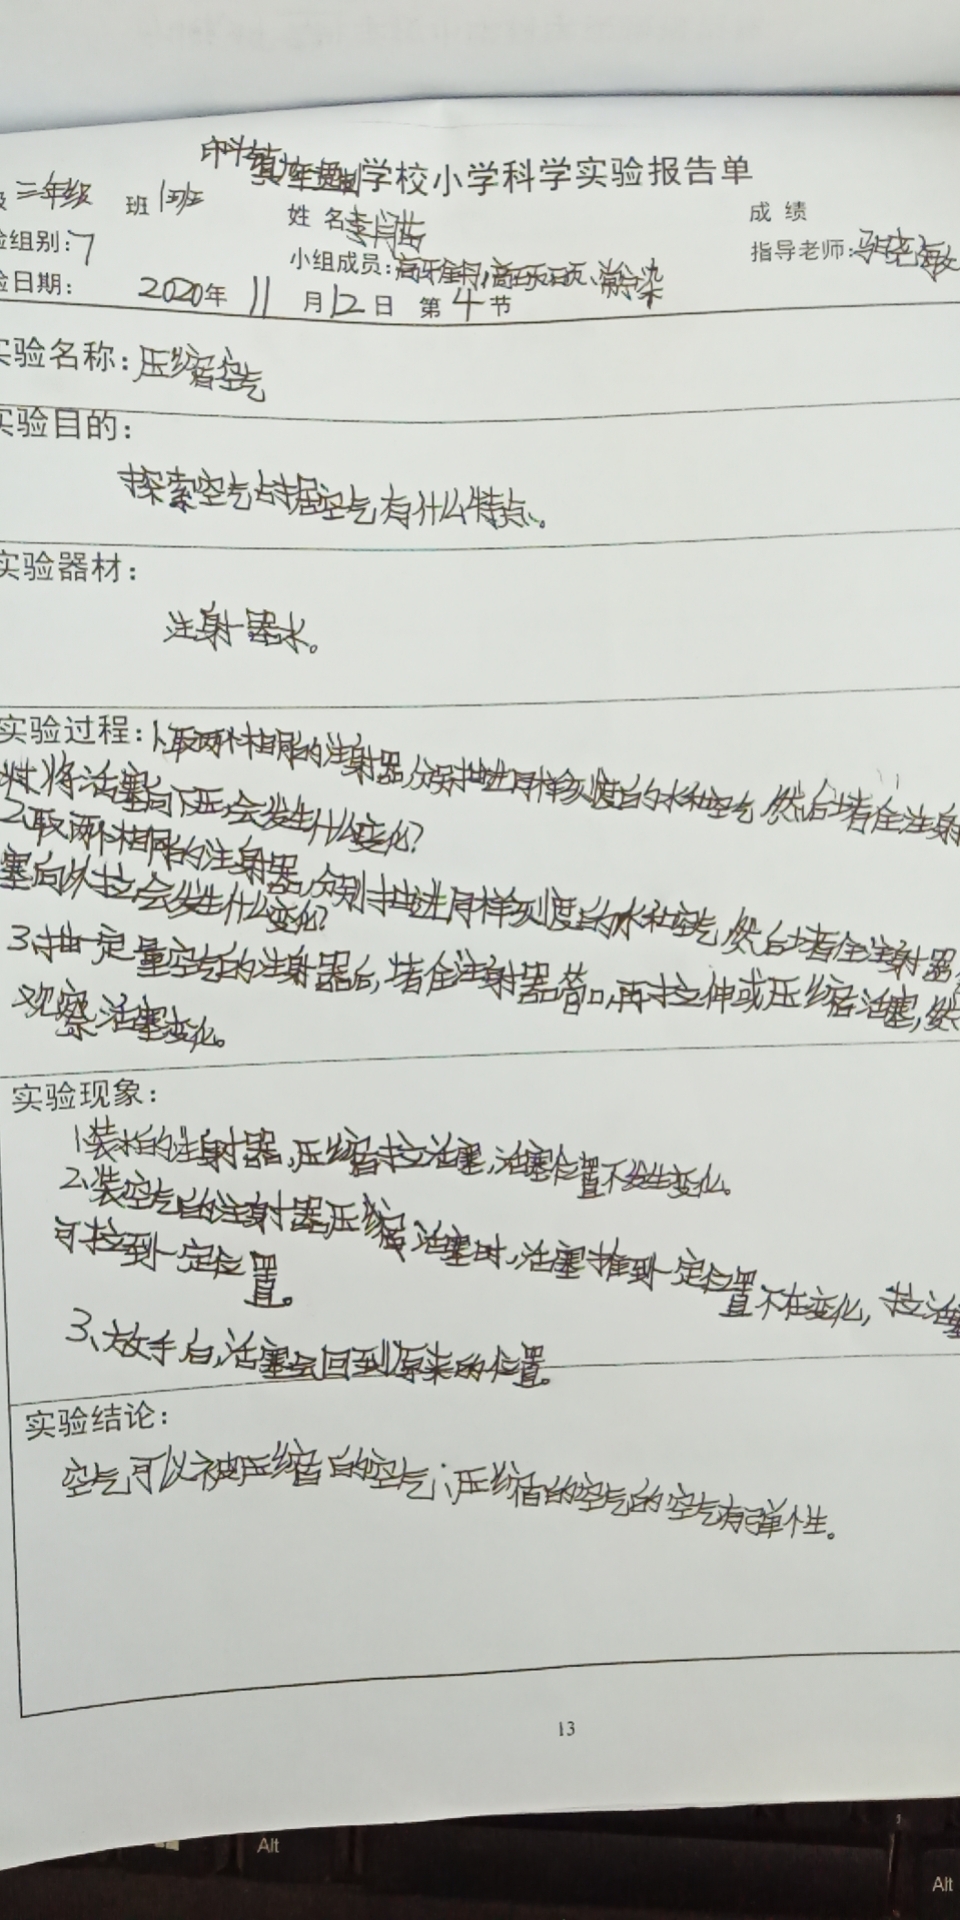 学校小学科学实验报告单
三年级 班 1班 姓名 李 成绩
组别：7 小组成员： 指导老师：
日期： 2020年 11 月 12 日 第 4 节
实验名称：压缩空气
实验目的：
探索空气占据空气有什么特点。
实验器材：
注射器水。
实验过程：1、取两个相同的注射器，分别抽进同样刻度的水和空气，然后堵住注射
时，将活塞向下压，会发生什么变化？
2、取两个相同的注射器，分别抽进同样刻度的水和空气，然后堵住注射器，
塞向外拉，会发生什么变化？
3、抽一定量空气的注射器后，堵住注射器管口，再拉伸或压缩活塞，然
观察活塞变化。
实验现象：
1、装水的注射器，压缩拉活塞，活塞位置不发生变化。
2、装空气的注射器压缩活塞时，活塞推到一定位置不在变化，拉活塞
可拉到一定位置。
3、放手后，活塞会回到原来的位置。
实验结论：
空气可以被压缩的空气；压缩的空气的空气有弹性。
13
Alt
Alt